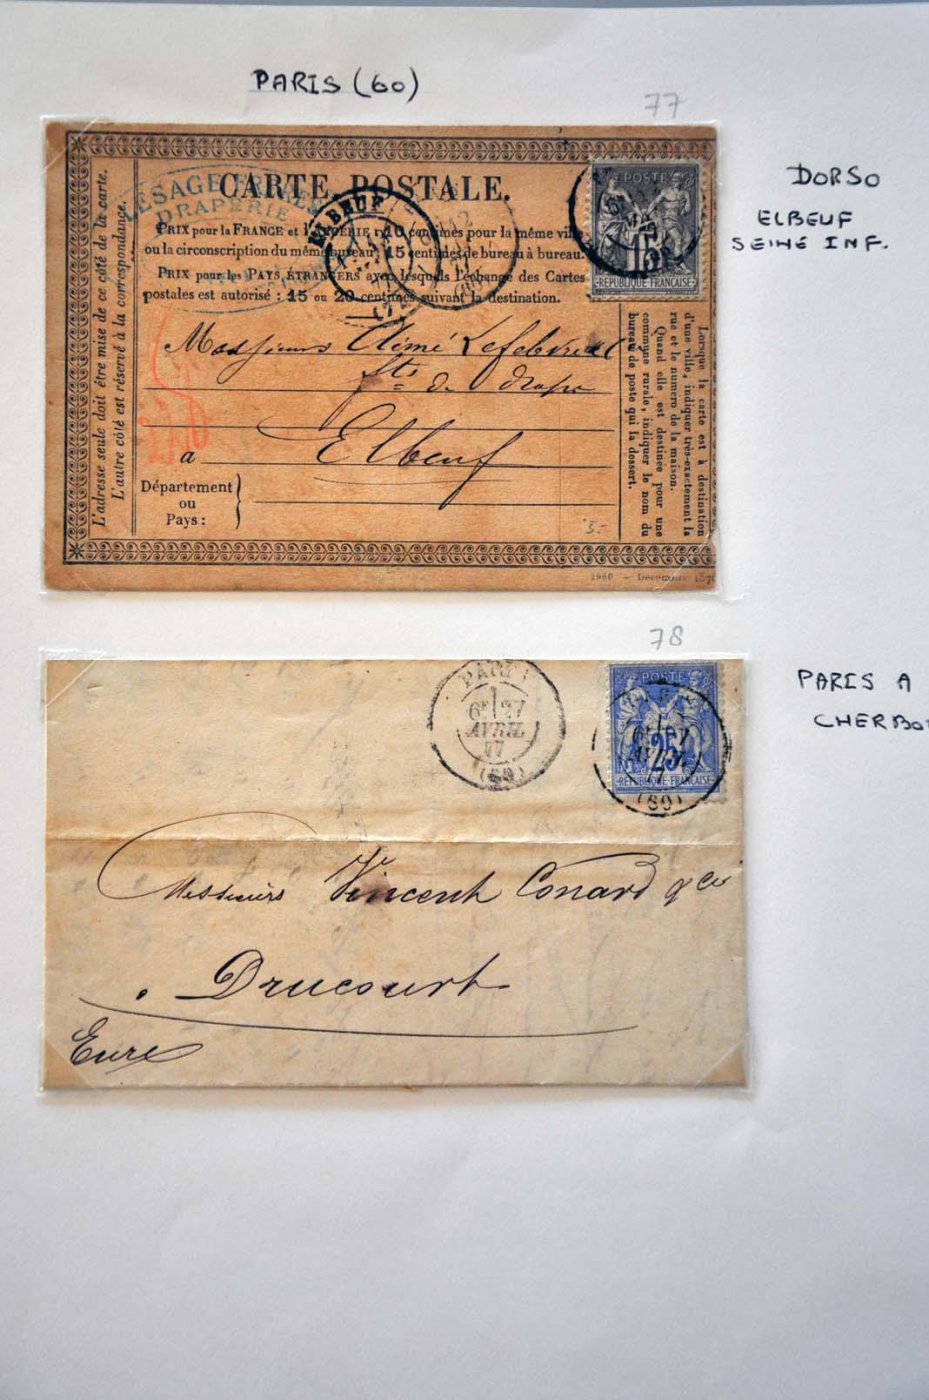 PARIS (60)
77
DORSO
ELBEUF
SEINE INF.
CARTE POSTALE.
LESAGE
DRAPERIE
PRIX pour la FRANCE et l'ALGÉRIE : 10 centimes pour la même ville
ou la circonscription du même bureau; 15 centimes de bureau à bureau.
PRIX pour les PAYS ÉTRANGERS avec lesquels l'échange des Cartes
postales est autorisé : 15 ou 20 centimes suivant la destination.
ELBEUF
77
POSTE
15
RÉPUBLIQUE FRANÇAISE
L'adresse seule doit être mise de ce côté de la carte.
L'autre côté est réservé à la correspondance.
Messieurs Aimé Lefebvre
de drape
à Elbeuf
Département
ou
Pays :
Lorsque la carte est à destination
d'une ville, indiquer très-exactement la
rue et le numéro de la maison.
Quand elle est destinée pour une
commune rurale, indiquer le nom du
bureau de poste qui la dessert.
5.-
Décembre 187
78
PARIS A
CHERBO
PARIS
6E 27
AVRIL
77
(60)
POSTE
25
RÉPUBLIQUE FRANÇAISE
(60)
Messieurs Vincent Conard & Cie
Drucourt
Eure